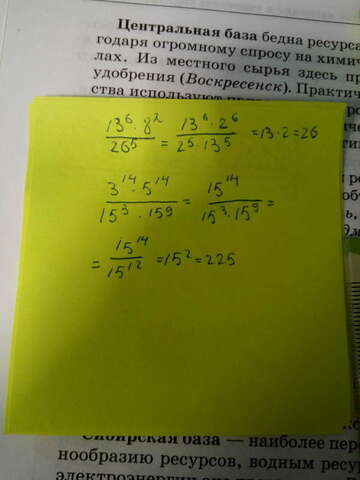 Центральная база бедна ресурса
годаря огромному спросу на химич
лях. Из местного сырья здесь пр
удобрения (Воскресенск). Практич
ства используют
13⁶·8² / 26⁵ = 13⁶·2⁶ / 2⁵·13⁵ = 13·2=26
3¹⁴·5¹⁴ / 15³·159 = 15¹⁴ / 15³·15⁹ =
= 15¹⁴ / 15¹² = 15² = 225
Сибирская база — наиболее пер
нообразию ресурсов, водным ресу